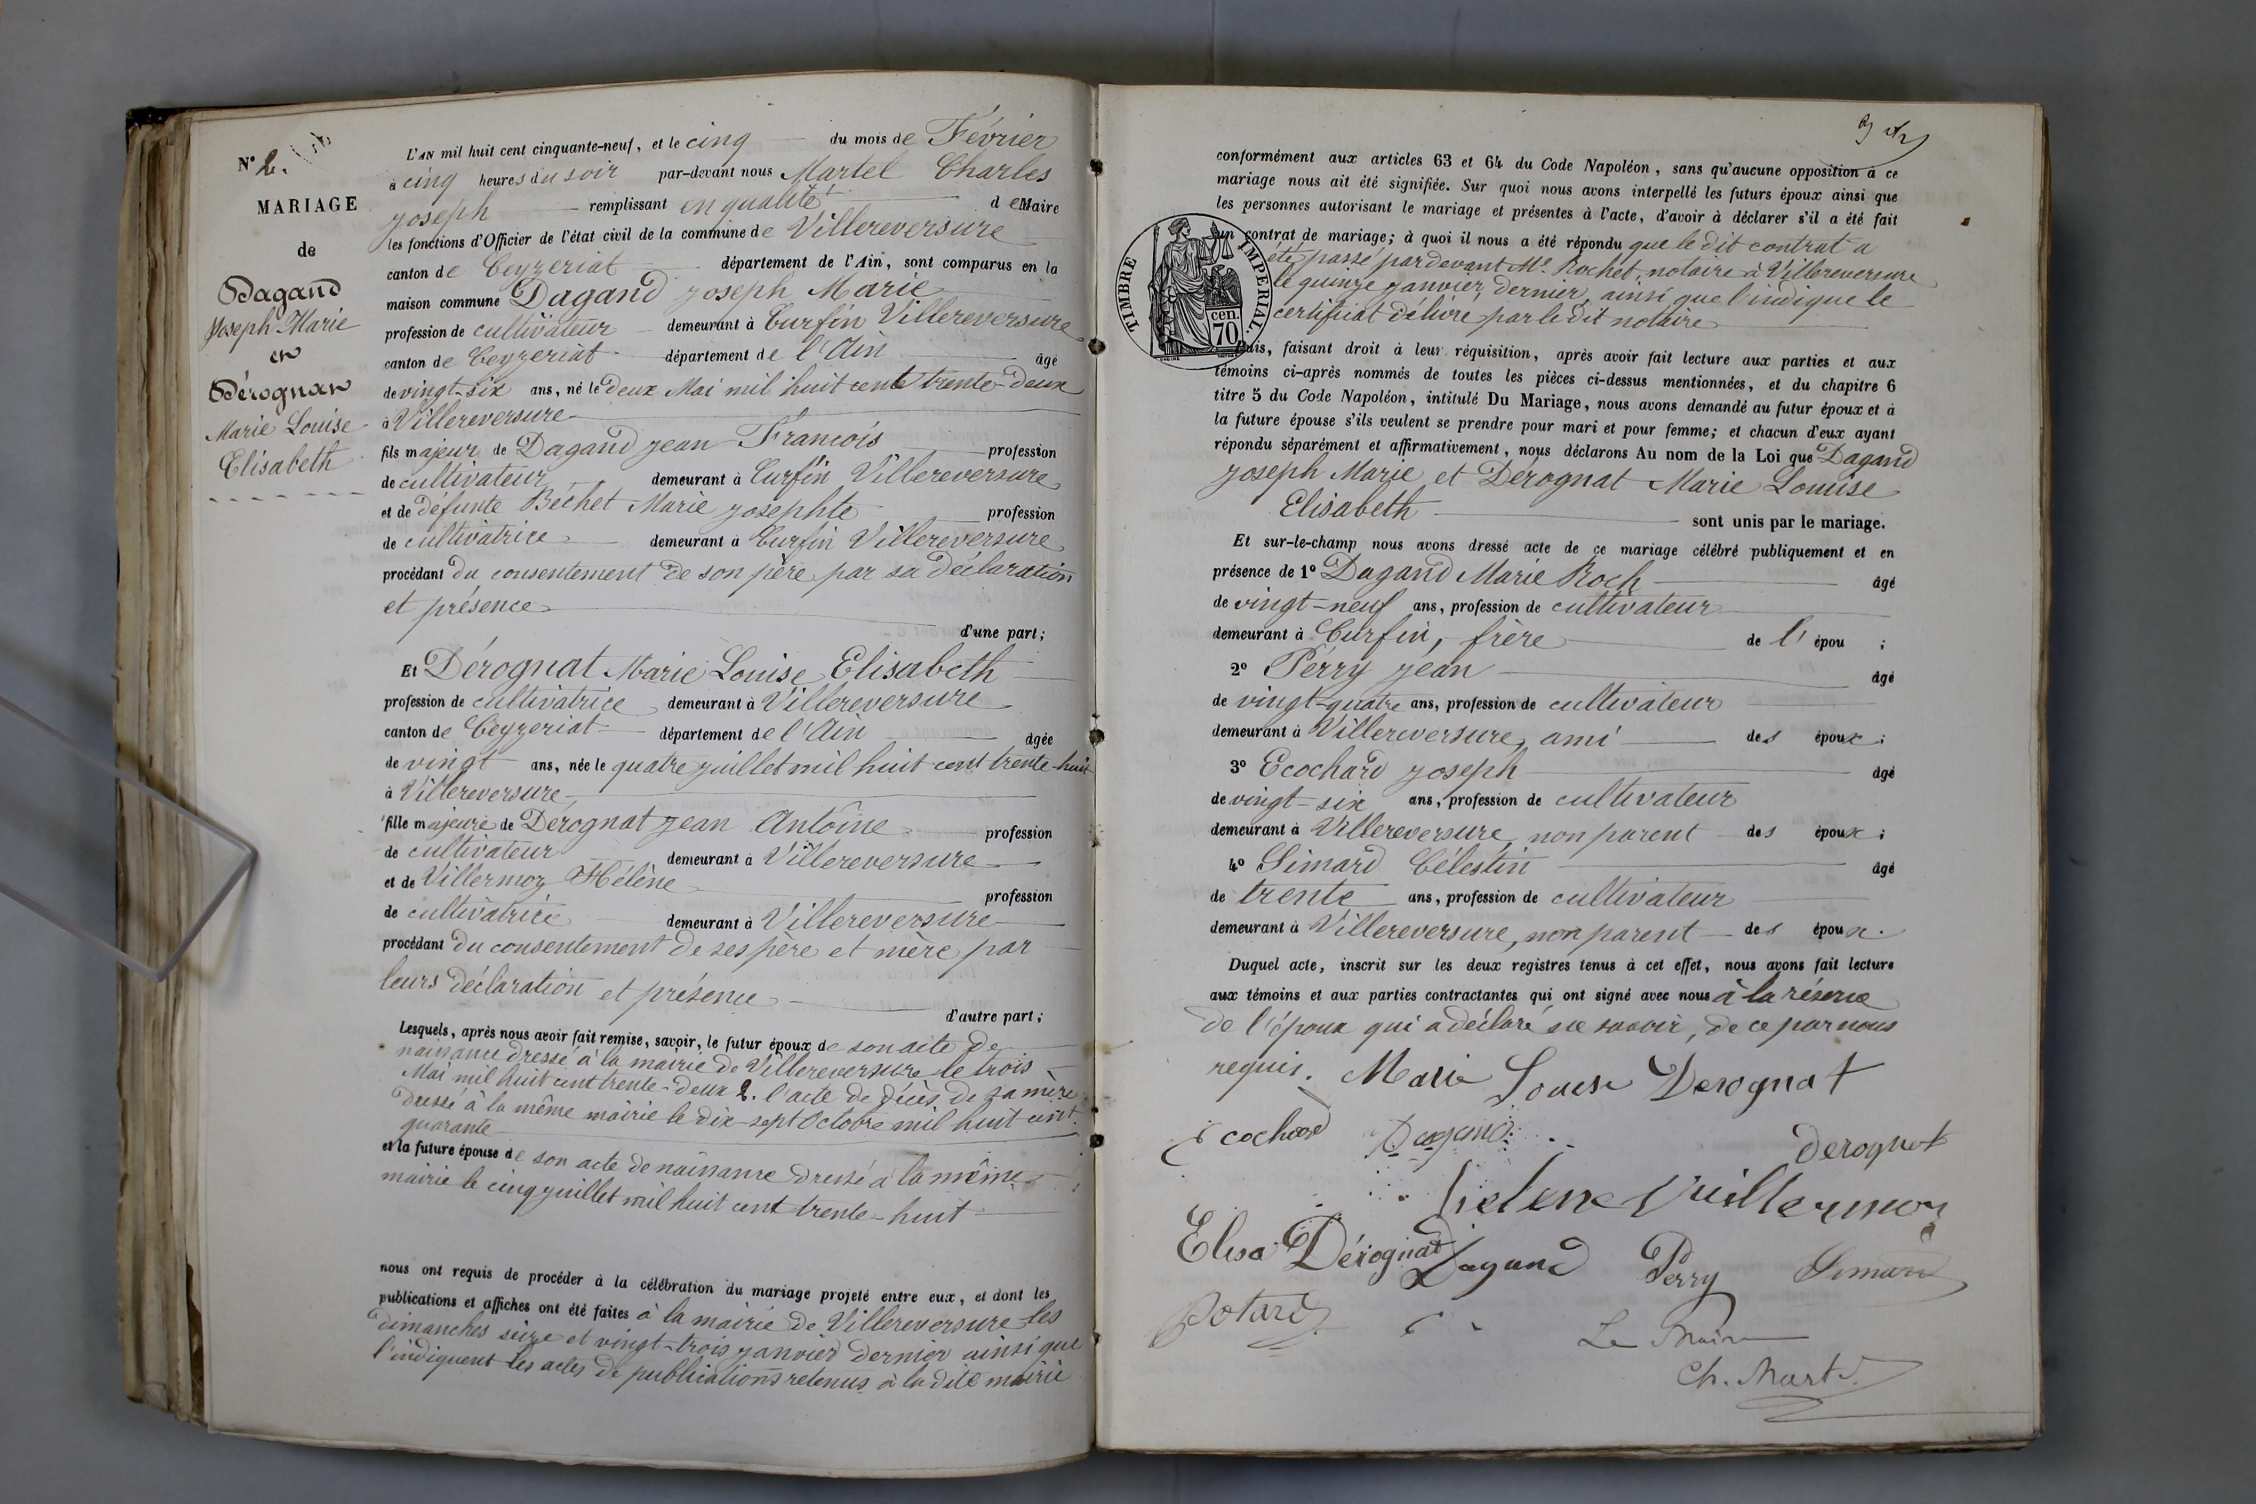 N° 2.
MARIAGE
de
Dagand
Joseph Marie
et
Dérognat
Marie Louise
Elisabeth
L'AN mil huit cent cinquante-neuf, et le cinq du mois de Février
à cinq heures du soir par-devant nous Martel Charles
Joseph remplissant en qualité de Maire
les fonctions d'Officier de l'état civil de la commune de Villereversure
canton de Ceyzeriat département de l'Ain, sont comparus en la
maison commune Dagand Joseph Marie
profession de cultivateur demeurant à Curfin Villereversure
canton de Ceyzeriat département de l'Ain âgé
de vingt-six ans, né le deux Mai mil huit cent trente-deux
à Villereversure
fils majeur de Dagand Jean François profession
de cultivateur demeurant à Curfin Villereversure
et de défunte Béchet Marie Josephte profession
de cultivatrice demeurant à Curfin Villereversure
procédant du consentement de son père par sa déclaration
et présence
d'une part;
Et Dérognat Marie Louise Elisabeth
profession de cultivatrice demeurant à Villereversure
canton de Ceyzeriat département de l'Ain âgée
de vingt ans, née le quatre juillet mil huit cent trente-huit
à Villereversure
fille majeure de Derognat Jean Antoine profession
de cultivateur demeurant à Villereversure
et de Villermoz Hélène profession
de cultivatrice demeurant à Villereversure
procédant du consentement de ses père et mère par
leurs déclaration et présence
d'autre part;
Lesquels, après nous avoir fait remise, savoir, le futur époux de son acte de
naissance dressé à la mairie de Villereversure le trois
Mai mil huit cent trente-deux 2. l'acte de décès de sa mère
dressé à la même mairie le dix-sept Octobre mil huit cent
quarante
et la future épouse de son acte de naissance dressé à la même
mairie le cinq juillet mil huit cent trente-huit
nous ont requis de procéder à la célébration du mariage projeté entre eux, et dont les
publications et affiches ont été faites à la mairie de Villereversure les
dimanches seize et vingt-trois janvier dernier ainsi que
l'indiquent les actes de publications retenus à la dite mairie
conformément aux articles 63 et 64 du Code Napoléon, sans qu'aucune opposition à ce
mariage nous ait été signifiée. Sur quoi nous avons interpellé les futurs époux ainsi que
les personnes autorisant le mariage et présentes à l'acte, d'avoir à déclarer s'il a été fait
un contrat de mariage; à quoi il nous a été répondu que le dit contrat a
été passé pardevant Me. Rochet, notaire à Villereversure
le quinze janvier dernier, ainsi que l'indique le
certificat délivré par le dit notaire
TIMBRE IMPERIAL.
70 cen.
Puis, faisant droit à leur réquisition, après avoir fait lecture aux parties et aux
témoins ci-après nommés de toutes les pièces ci-dessus mentionnées, et du chapitre 6
titre 5 du Code Napoléon, intitulé Du Mariage, nous avons demandé au futur époux et à
la future épouse s'ils veulent se prendre pour mari et pour femme; et chacun d'eux ayant
répondu séparément et affirmativement, nous déclarons Au nom de la Loi que Dagand
Joseph Marie et Dérognat Marie Louise
Elisabeth sont unis par le mariage.
Et sur-le-champ nous avons dressé acte de ce mariage célébré publiquement et en
présence de 1° Dagand Marie Roch âgé
de vingt-neuf ans, profession de cultivateur
demeurant à Curfin, frère de l' épou ;
2° Perry Jean âgé
de vingt-quatre ans, profession de cultivateur
demeurant à Villereversure, ami des époux;
3° Ecochard Joseph âgé
de vingt-six ans, profession de cultivateur
demeurant à Villereversure, non parent des époux;
4° Simard Célestin âgé
de trente ans, profession de cultivateur
demeurant à Villereversure, non parent des époux.
Duquel acte, inscrit sur les deux registres tenus à cet effet, nous avons fait lecture
aux témoins et aux parties contractantes qui ont signé avec nous à la réserve
de l'époux qui a déclaré ne savoir, de ce par nous
requis. Marie Louise Derognat
Ecochard Dagand
derognat
helene Vuillermoz
Elisa Dérognat Dagand Perry Simard
Potard
Le Maire
Ch. Martel